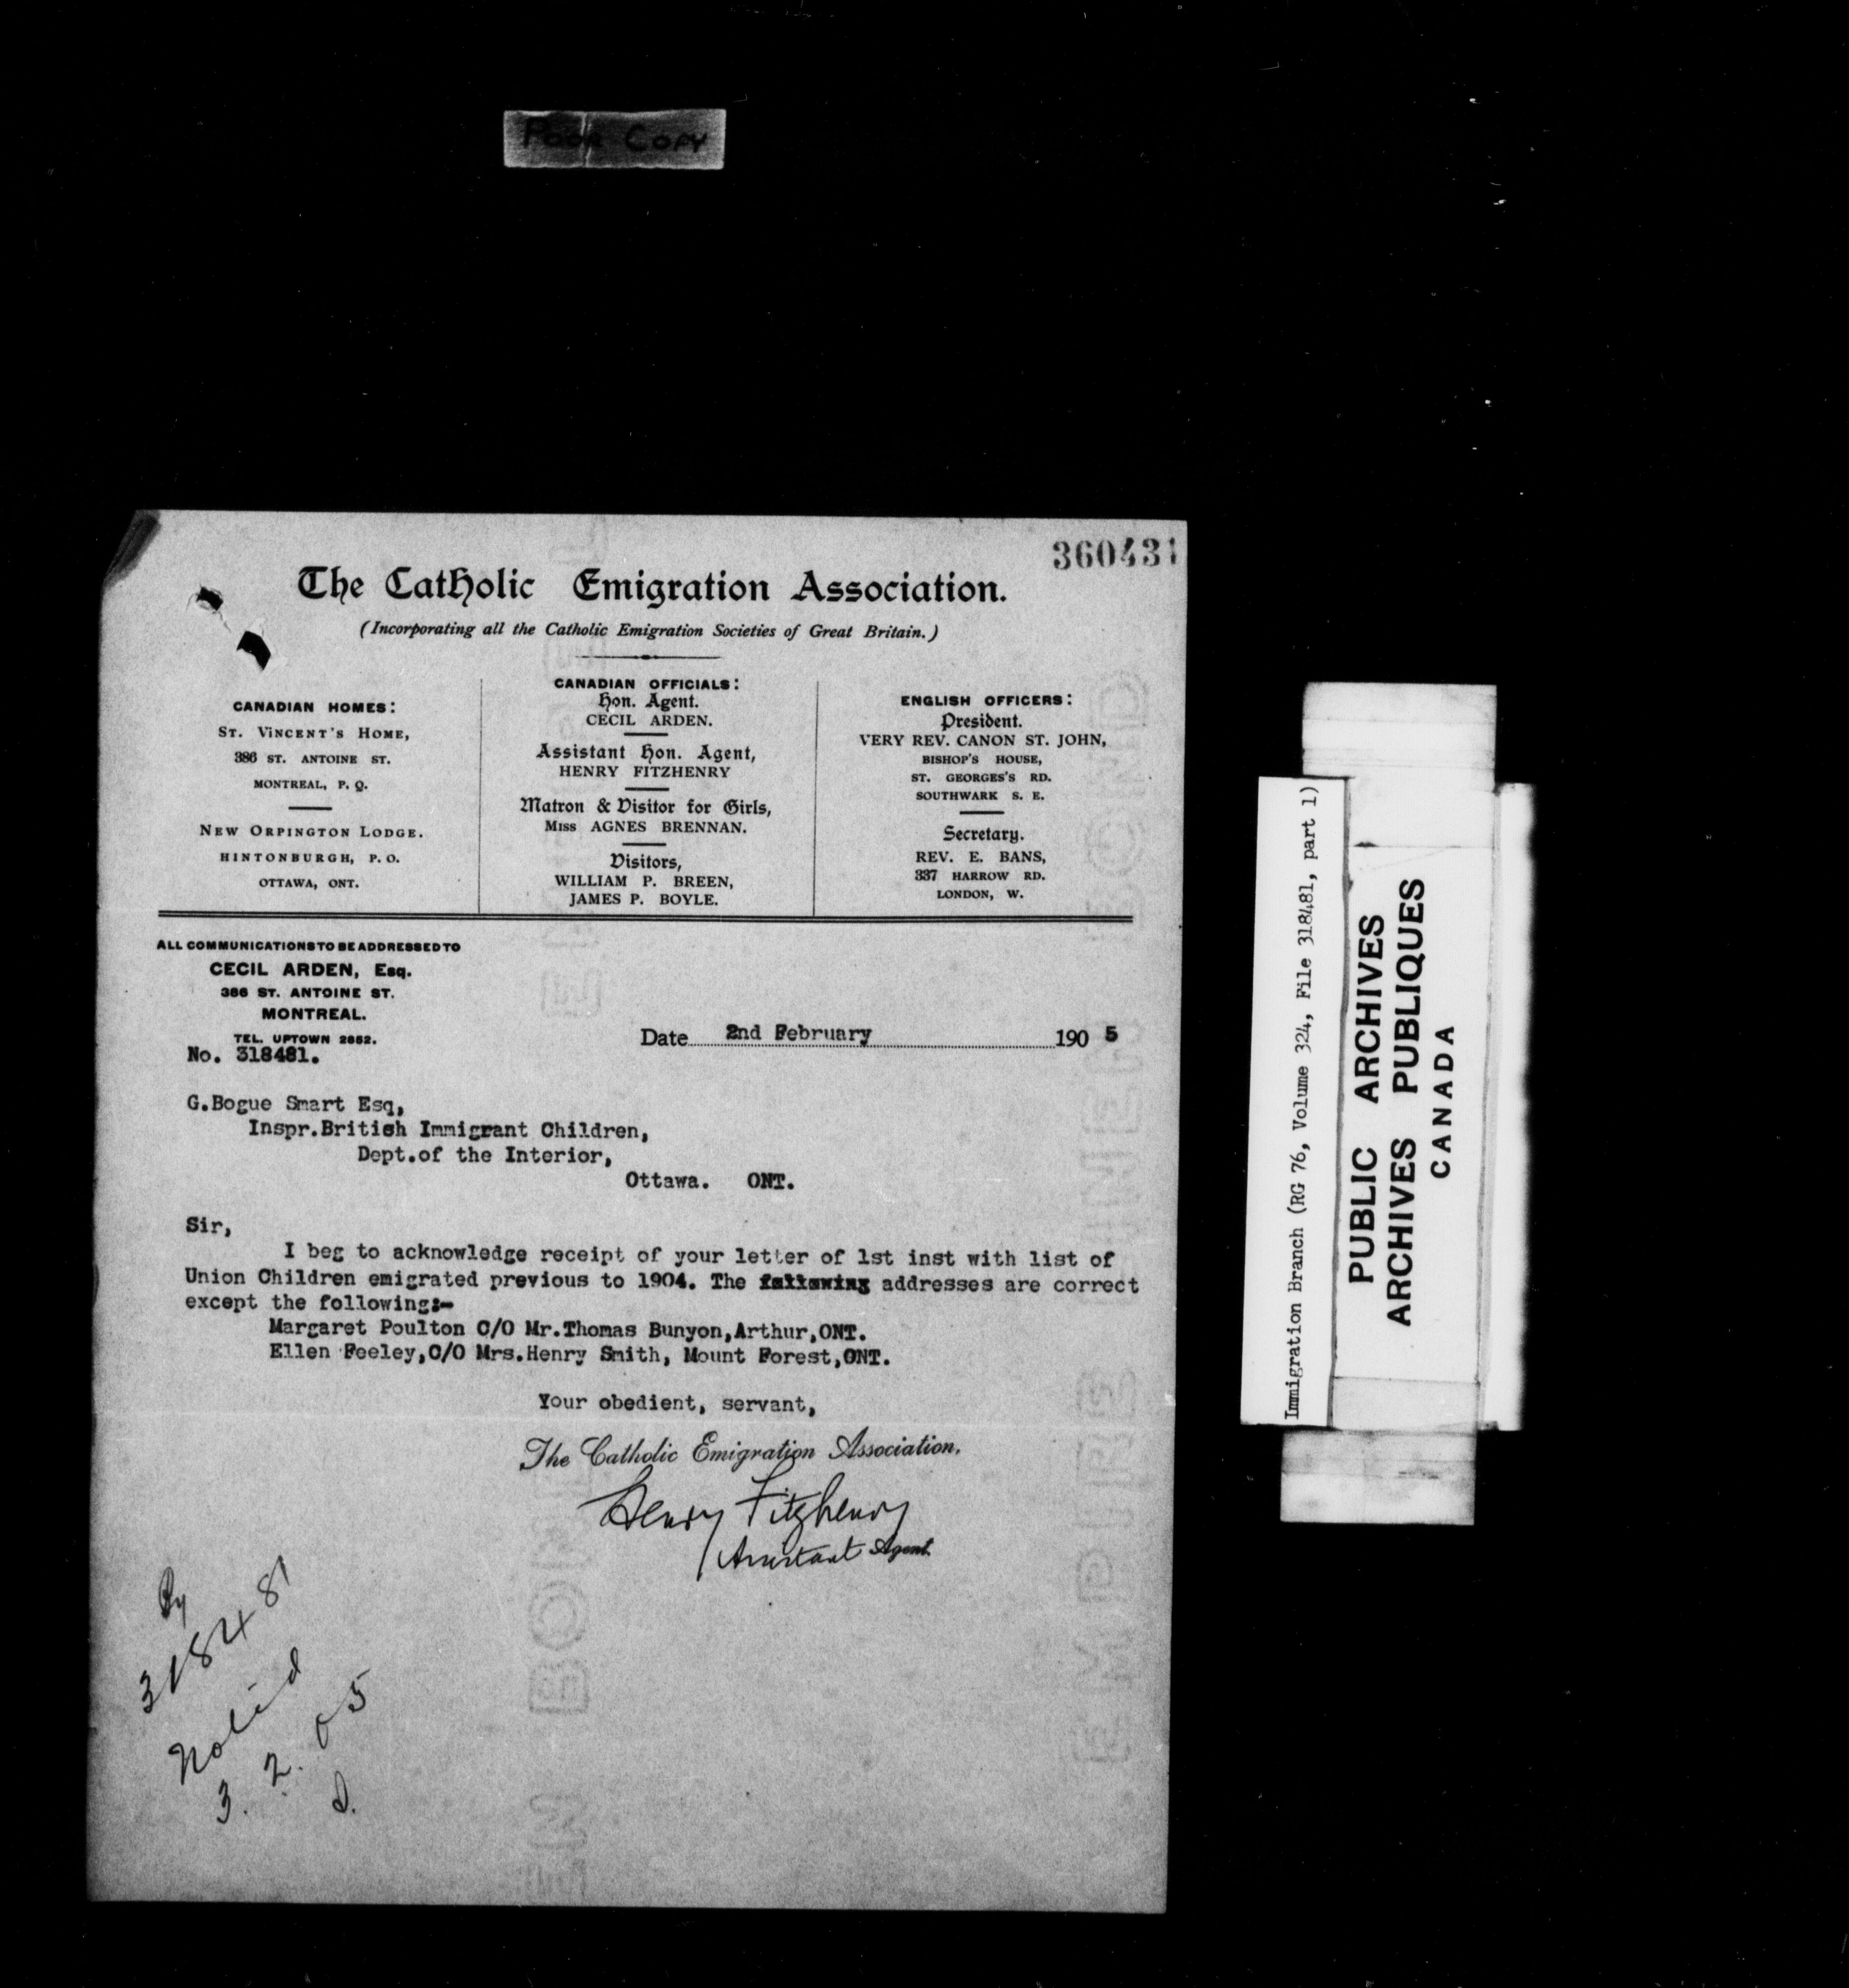 Poor Copy
360431
The Catholic Emigration Association.
(Incorporating all the Catholic Emigration Societies of Great Britain.)
CANADIAN HOMES:
ST. VINCENT'S HOME,
386 ST. ANTOINE ST.
MONTREAL, P. Q.
NEW ORPINGTON LODGE.
HINTONBURGH, P. O.
OTTAWA, ONT.
CANADIAN OFFICIALS:
Hon. Agent.
CECIL ARDEN.
Assistant Hon. Agent,
HENRY FITZHENRY
Matron & Visitor for Girls,
MISS AGNES BRENNAN.
Visitors,
WILLIAM P. BREEN,
JAMES P. BOYLE.
ENGLISH OFFICERS:
President.
VERY REV. CANON ST. JOHN,
BISHOP'S HOUSE,
ST. GEORGES'S RD.
SOUTHWARK S. E.
Secretary.
REV. E. BANS,
337 HARROW RD.
LONDON, W.
ALL COMMUNICATIONS TO BE ADDRESSED TO
CECIL ARDEN, Esq.
386 ST. ANTOINE ST.
MONTREAL.
TEL. UPTOWN 2652.
No. 318481.
Date 2nd February 1905
G.Bogue Smart Esq,
Inspr.British Immigrant Children,
Dept.of the Interior,
Ottawa. ONT.
Sir,
I beg to acknowledge receipt of your letter of 1st inst with list of
Union Children emigrated previous to 1904. The following addresses are correct
except the following:-
Margaret Poulton C/O Mr.Thomas Bunyon,Arthur,ONT.
Ellen Feeley,C/O Mrs.Henry Smith, Mount Forest,ONT.
Your obedient, servant,
The Catholic Emigration Association.
Henry Fitzhenry
Assistant Agent.
By
318481
Noted
3. 2. 05
Immigration Branch (RG 76, Volume 324, File 318481, part 1)
PUBLIC ARCHIVES
ARCHIVES PUBLIQUES
CANADA